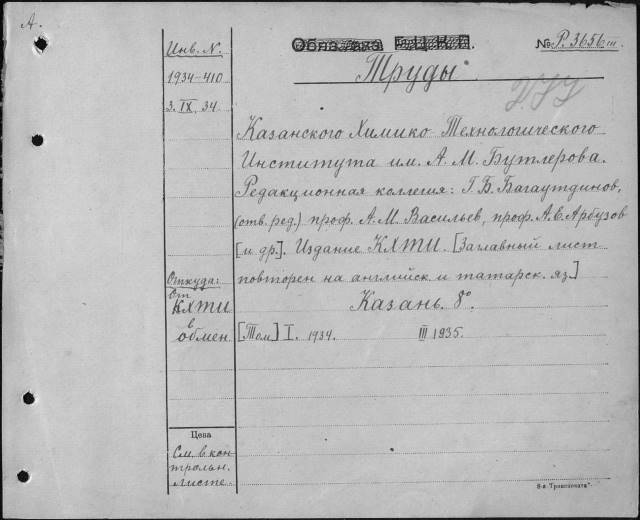 А.
Инв. N.
1934-410
3. IX. 34
№ Р. 3656 III.
Труды
Казанского Химико Технологического
Института им. А. М. Бутлерова.
Редакционная коллегия: Г. Б. Багаутдинов,
(отв. ред.) проф. А. М. Васильев, проф. А. Е. Арбузов
[и др.]. Издание КХТИ. [Заглавный лист
повторен на английск. и татарск. яз.]
Казань. 8°.
[Том] I. 1934. III 1935.
Откуда:
От
КХТИ
в
обмен
Цена
См. в кон
трольн.
листе.